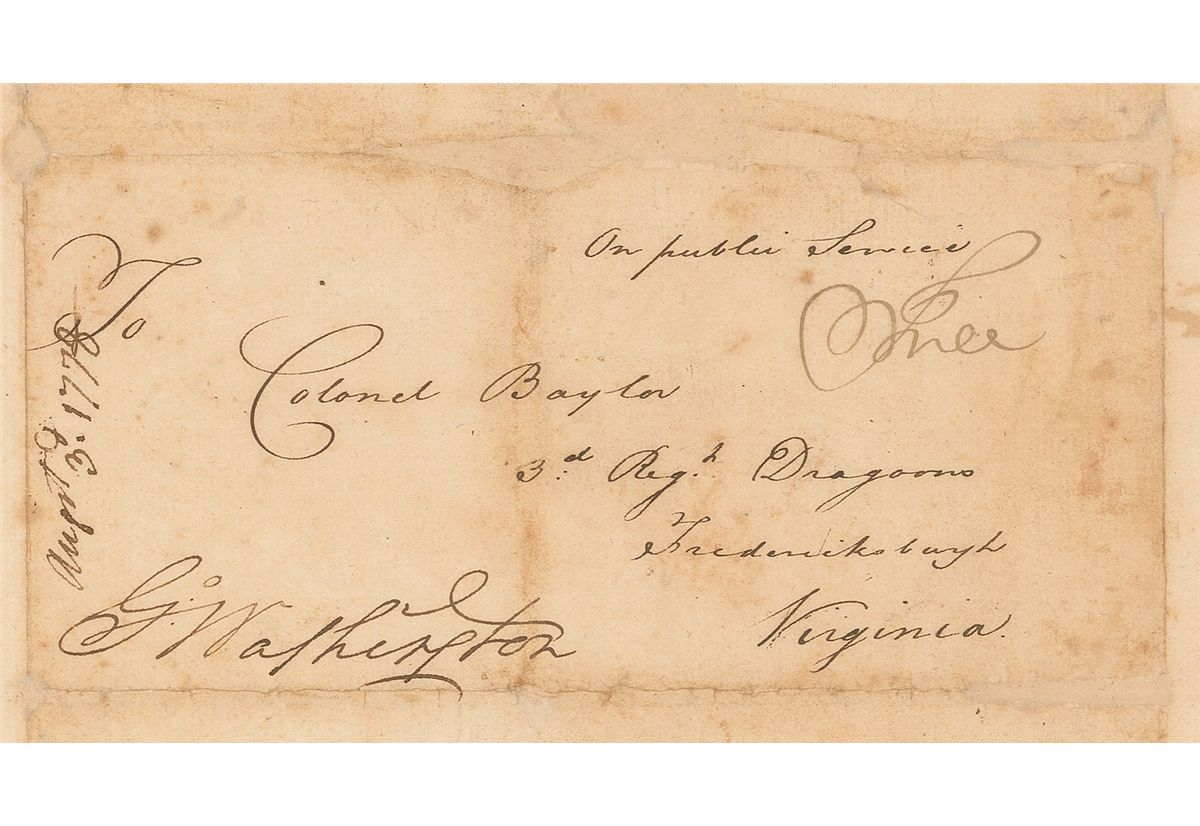 On public Service
Free
To
Colonel Baylor
3.d Reg.t Dragoons
Fredericksburgh
Virginia.
G:Washington
Augst 3. 1778